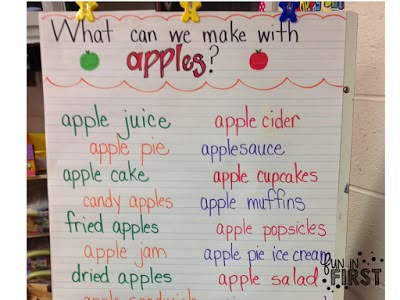 What can we make with
apples?
apple juice
apple cider
apple pie
applesauce
apple cake
apple cupcakes
candy apples
apple muffins
fried apples
apple popsicles
apple jam
apple pie ice cream
dried apples
apple salad
apple sandwich
FUN IN
FIRST